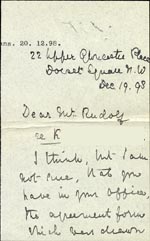 ans. 20.12.98.
22 Upper Gloucester Place
Dorset Square N.W
Dec 19. 98
Dear Mr. Rudolf
re K
I think, but I am
not sure, that you
have in your office,
the agreement form
which was drawn